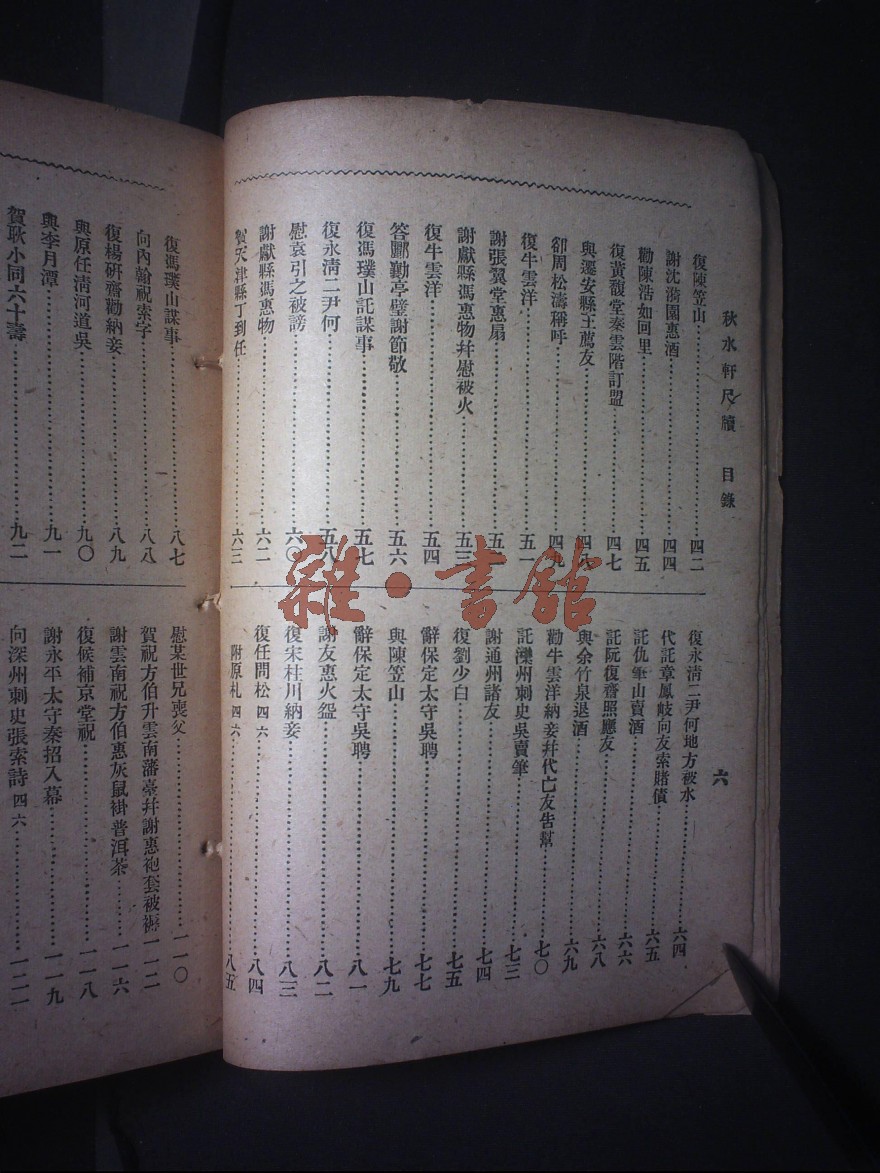 秋水軒尺牘 目錄
六
復陳笠山……四二
謝沈漪園惠酒……四四
勸陳浩如回里……四五
復黃馥堂秦雲階訂盟……四七
與遷安縣王薦友……四八
卻周松濤稱呼……四九
復牛雲洋……五一
謝張翼堂惠扇……五二
謝獻縣馮惠物幷慰被火……五三
復牛雲洋……五四
答酈勷亭璧謝節敬……五六
復馮璞山託謀事……五七
復永清二尹何……五八
慰袁引之被謗……六〇
謝獻縣馮惠物……六二
賀天津縣丁到任……六三
復永清二尹何地方被水……六四
代託章鳳岐向友索賭債……六五
託仇筆山賣酒……六六
託阮復齋照應友……六八
與余竹泉退酒……六九
勸牛雲洋納妾幷代亡友告幫……七〇
託灤州刺史吳賣筆……七三
謝通州諸友……七四
復劉少白……七五
辭保定太守吳聘……七七
與陳笠山……七九
辭保定太守吳聘……八一
謝友惠火盌……八二
復宋桂川納妾……八三
復任問松 四六……八四
附原札 四六……八五
復馮璞山謀事……八七
向內翰祝索字……八八
復楊硏齋勸納妾……八九
與原任淸河道吳……九〇
與李月潭……九一
賀耿小同六十壽……九二
慰某世兄喪父……一一〇
賀祝方伯升雲南藩臺幷謝惠袍套被褥……一一二
謝雲南祝方伯惠灰鼠褂普洱茶……一一六
復候補京堂祝……一一八
謝永平太守秦招入幕……一一九
向深州刺史張索詩 四六……一二一
雜·書館